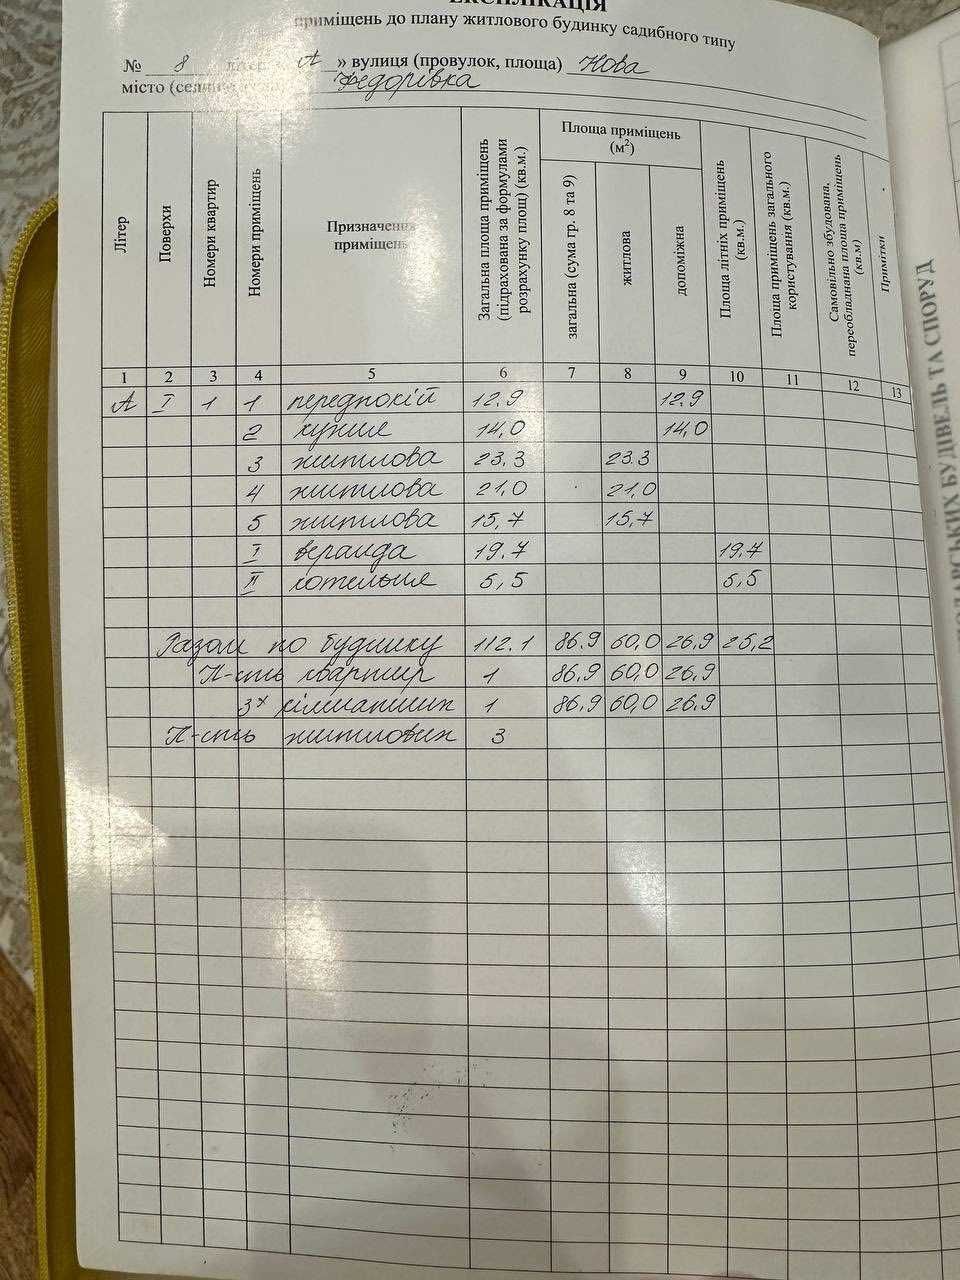 ЕКСПЛІКАЦІЯ
приміщень до плану житлового будинку садибного типу
№ 8 літер « А » вулиця (провулок, площа) Нова
місто (селище, село) Федорівка
Літер
Поверхи
Номери квартир
Номери приміщень
Призначення приміщень
Загальна площа приміщень (підрахована за формулами розрахунку площ) (кв.м.)
Площа приміщень (м²)
загальна (сума гр. 8 та 9)
житлова
допоміжна
Площа літніх приміщень (кв.м.)
Площа приміщень загального користування (кв.м.)
Самовільно збудована, переобладнана площа приміщень (кв.м)
Примітки
1 2 3 4 5 6 7 8 9 10 11 12 13
А I 1 1 передпокій 12.9 12.9
2 кухня 14,0 14,0
3 житлова 23.3 23.3
4 житлова 21.0 21,0
5 житлова 15,7 15,7
I веранда 19.7 19.7
II котельня 5,5 5,5
Разом по будинку 112.1 86.9 60,0 26,9 25,2
К-сть квартир 1 86.9 60,0 26,9
3х кімнатних 1 86,9 60,0 26,9
К-сть житлових 3
ПОДАРСЬКИХ БУДІВЕЛЬ ТА СПОРУД